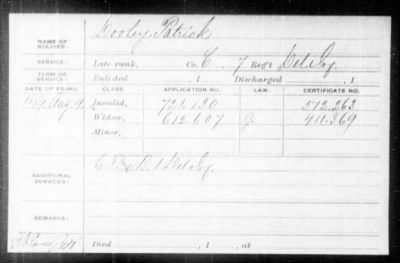 Dooley Patrick
NAME OF SOLDIER:
SERVICE: Late rank, Co. C, 7 Reg't Del Inf.
TERM OF SERVICE: Enlisted , 1 Discharged , 1
DATE OF FILING. CLASS. APPLICATION NO. LAW. CERTIFICATE NO.
Aug. Invalid, 721.130 512.263
Widow, 612.607 411.369
Minor,
ADDITIONAL SERVICES: Del Inf.
REMARKS:
Died , 1 , at